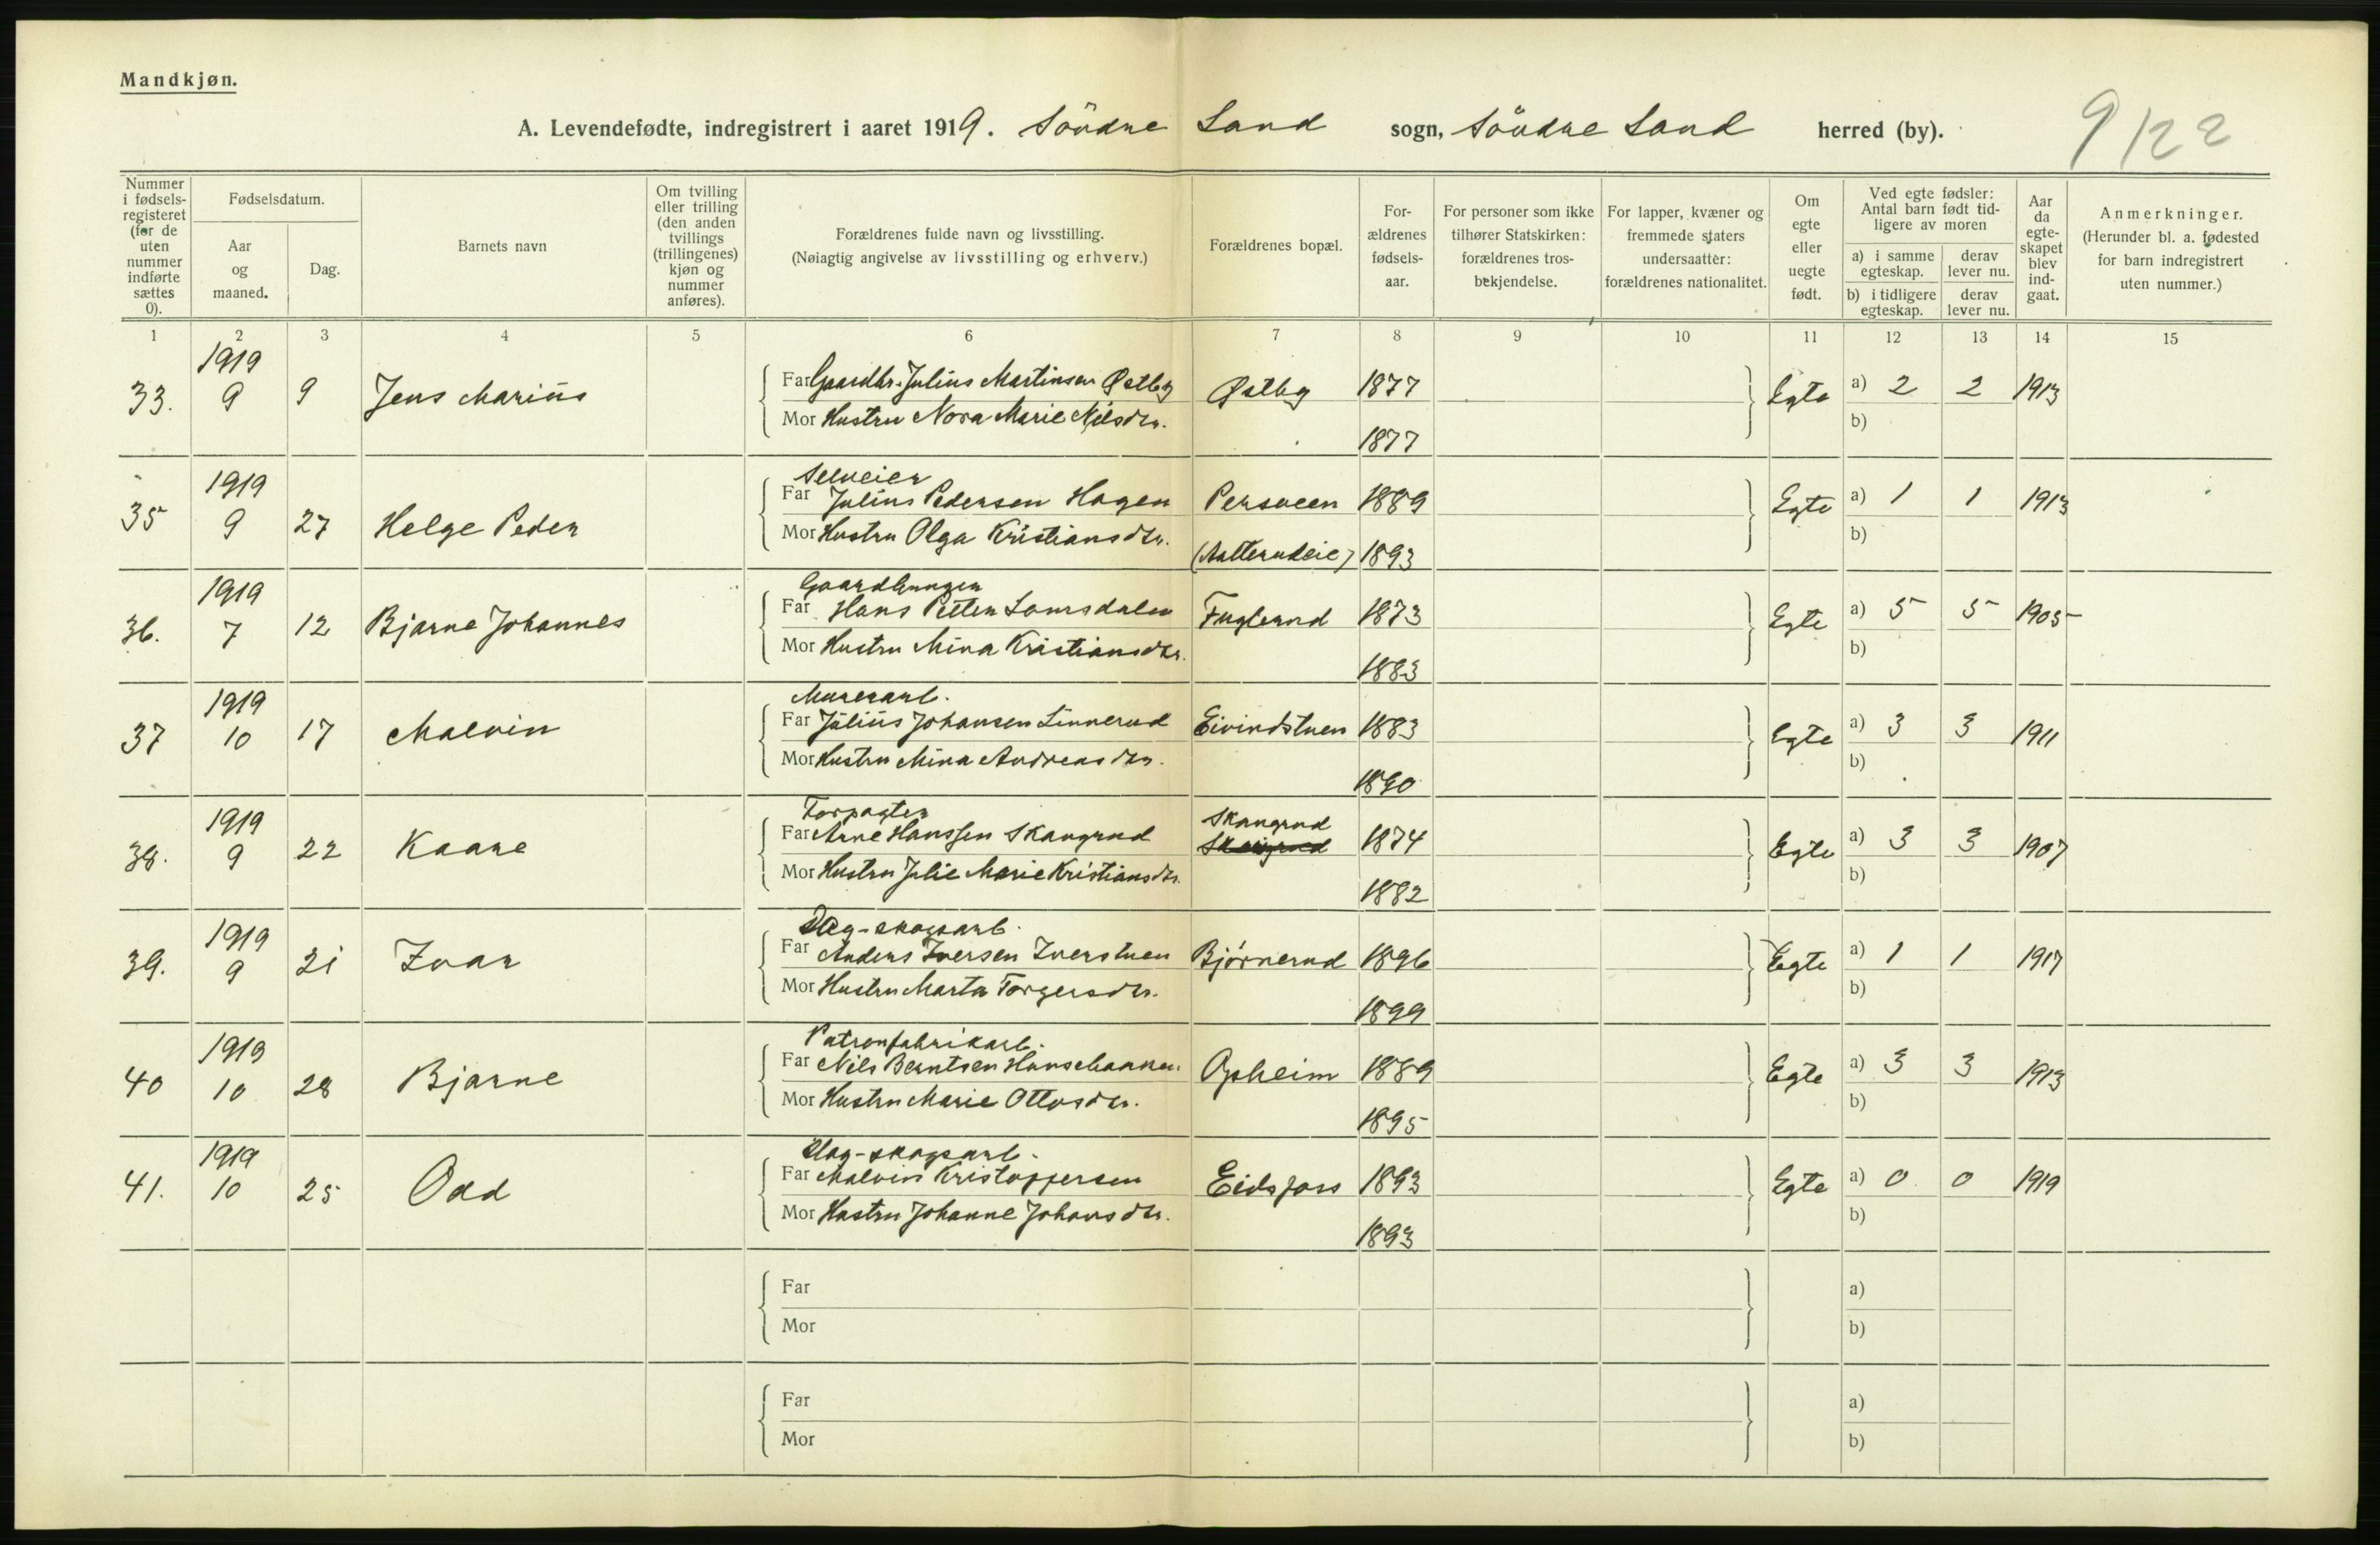 Mandkjøn.
A. Levendefødte, indregistrert i aaret 1919. Söndre Land sogn, Söndre Land herred (by).
9/22
Nummer i fødsels-registeret (før de uten nummer indførte sættes 0).
Fødselsdatum.
Aar og maaned.
Dag.
Barnets navn
Om tvilling eller trilling (den anden tvillings (trillingenes) kjøn og nummer anføres).
Forældrenes fulde navn og livsstilling.
(Nøiagtig angivelse av livsstilling og erhverv.)
Forældrenes bopæl.
For-ældrenes fødsels-aar.
For personer som ikke tilhører Statskirken: forældrenes tros-bekjendelse.
For lapper, kvæner og fremmede staters undersaatter: forældrenes nationalitet.
Om egte eller uegte født.
Ved egte fødsler: Antal barn født tid-ligere av moren
a) i samme egteskap.
derav lever nu.
b) i tidligere egteskap.
derav lever nu.
Aar da egte-skapet blev ind-gaat.
Anmerkninger.
(Herunder bl. a. fødested for barn indregistrert uten nummer.)
1 2 3 4 5 6 7 8 9 10 11 12 13 14 15
1919
33. 9 9 Jens Marius Far Gaardbr. Julius Martinsen Østby Østby 1877 Egte a) 2 2 1913
Mor Hustru Nora Marie Nilsdtr. 1877 b)
1919 Selveier
35 9 27 Helge Peder Far Julius Pedersen Hagen Persveen 1889 Egte a) 1 1 1913
Mor Hustru Olga Kristiansdtr. 1893 b)
1919 Gaardbruger
36. 7 12 Bjarne Johannes Far Hans Petter Lomsdalen Fuglerud 1873 Egte a) 5 5 1905
Mor Hustru Mina Kristiansdtr. 1883 b)
1919 Murerarb.
37 10 17 Malvin Far Julius Johansen Linnerud Eivindstuen 1883 Egte a) 3 3 1911
Mor Hustru Mina Andreasdtr. 1890 b)
1919 Forpagter Skangrud
38. 9 22 Kaare Far Arne Hanssen Skangrud 1874 Egte a) 3 3 1907
Mor Hustru Julie Marie Kristiansdtr. 1882 b)
1919 Dag-skogsarb.
39. 9 21 Ivar Far Anders Iversen Iverstuen Bjørnerud 1896 Egte a) 1 1 1917
Mor Hustru Marta Torgersdtr. 1899 b)
1919 Patronfabrikarb.
40 10 28 Bjarne Far Nils Berntsen Opheim 1889 Egte a) 3 3 1913
Mor Hustru Marie Ottosdtr. 1895 b)
1919 Dag-skogsarb.
41. 10 25 Odd Far Malvin Kristoffersen Eidsfoss 1893 Egte a) 0 0 1919
Mor Hustru Johanne Johansdtr. 1893 b)
Far a)
Mor b)
Far a)
Mor b)